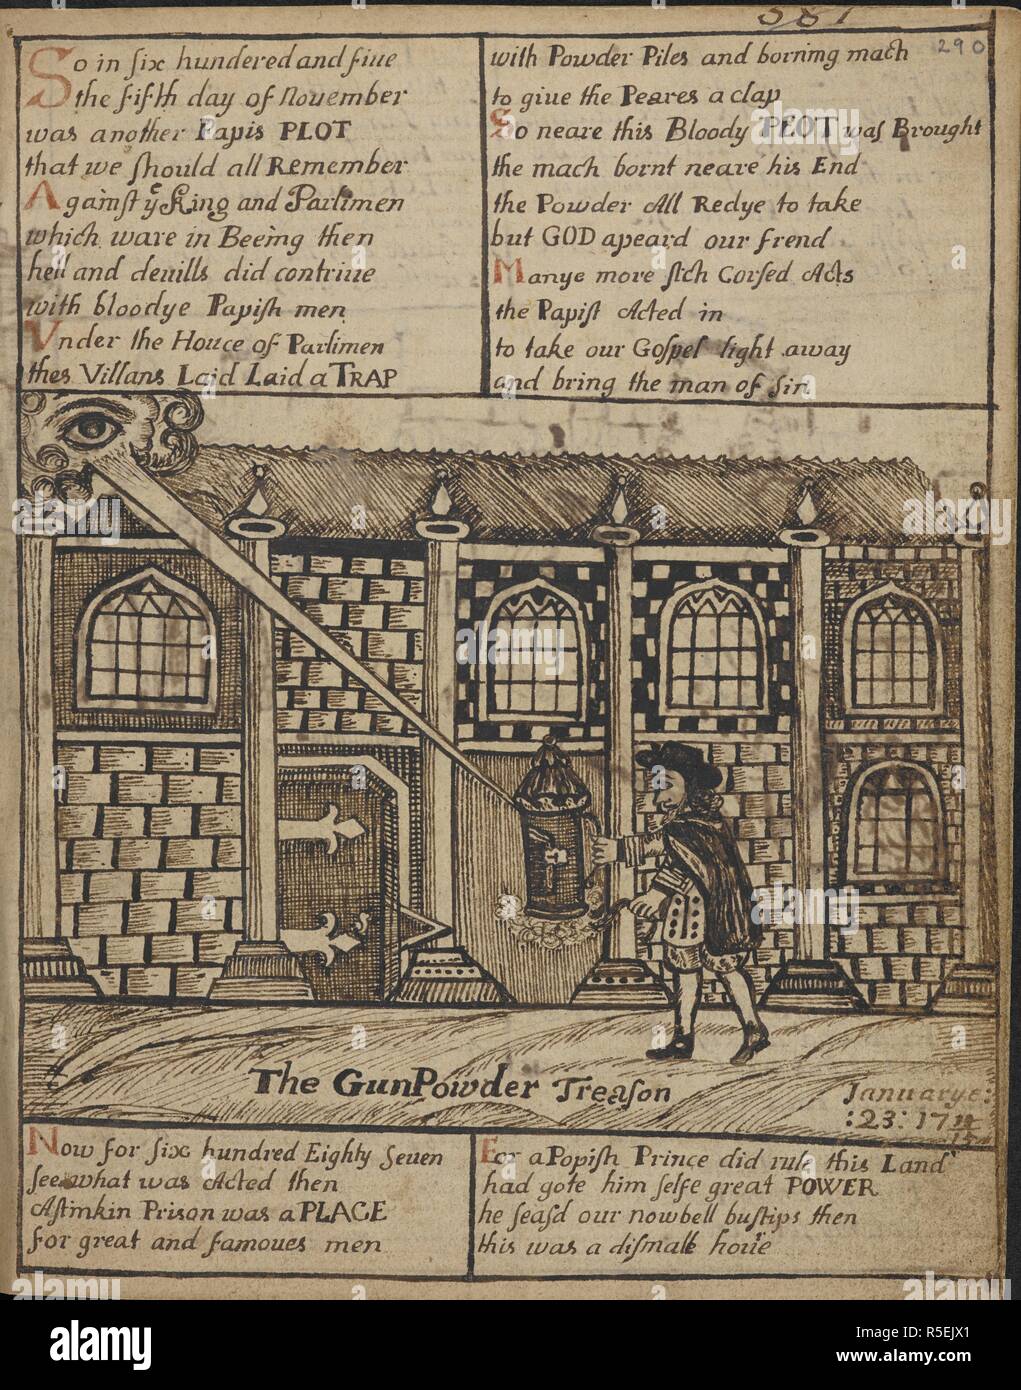 581
290
So in six hundered and fiue
the fifth day of November
was another Papis PLOT
that we should all Remember
Against ye King and Parlimen
which ware in Beeing then
hell and deuills did contriue
with bloodye Papish men
Vnder the Houce of Parlimen
thes Villans Laid Laid a TRAP
with Powder Piles and borning mach
to giue the Peares a clap
So neare this Bloody PLOT was Brought
the mach bornt neare his End
the Powder All Redye to take
but GOD apeard our frend
Manye more sich Corsed Acts
the Papist Acted in
to take our Gospel light away
and bring the man of sin
The GunPowder Treason
Januarye:
:23: 17
15
Now for six hundred Eighty Seuen
see what was Acted then
A stinkin Prison was a PLACE
for great and famoues men
For a Popish Prince did rule this Land
had gote him selfe great POWER
he seasd our nowbell bustips then
this was a dismall
alamy
Image ID: R5EJX1
www.alamy.com